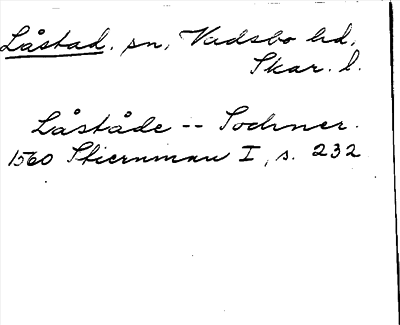 Låstad. sn, Vadsbo hd,
Skar. l.
Låståde -- Sochner.
1560 Stiernman I, s. 232